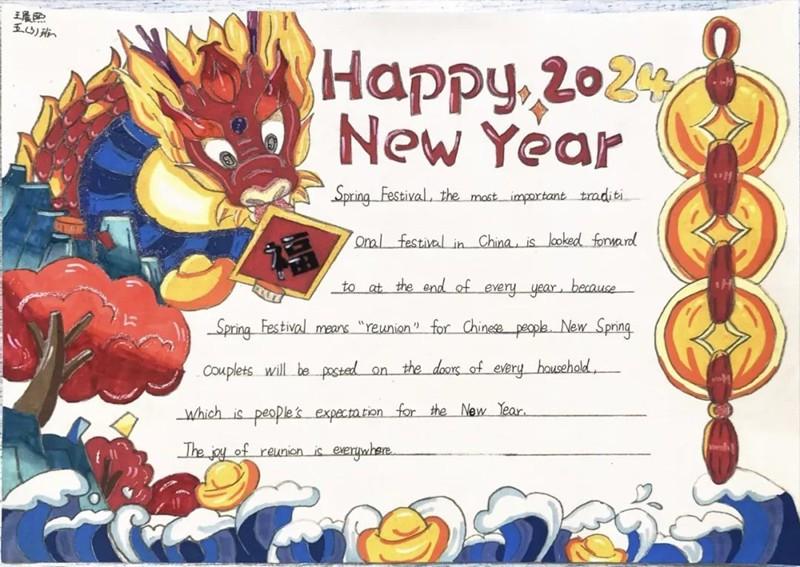 五(3)班
Happy 2024
New Year
Spring Festival, the most important traditi
onal festival in China, is looked forward
to at the end of every year, because
福
Spring Festival means "reunion" for Chinese people. New Spring
couplets will be posted on the doors of every household,
which is people's expectation for the New Year.
The joy of reunion is everywhere.